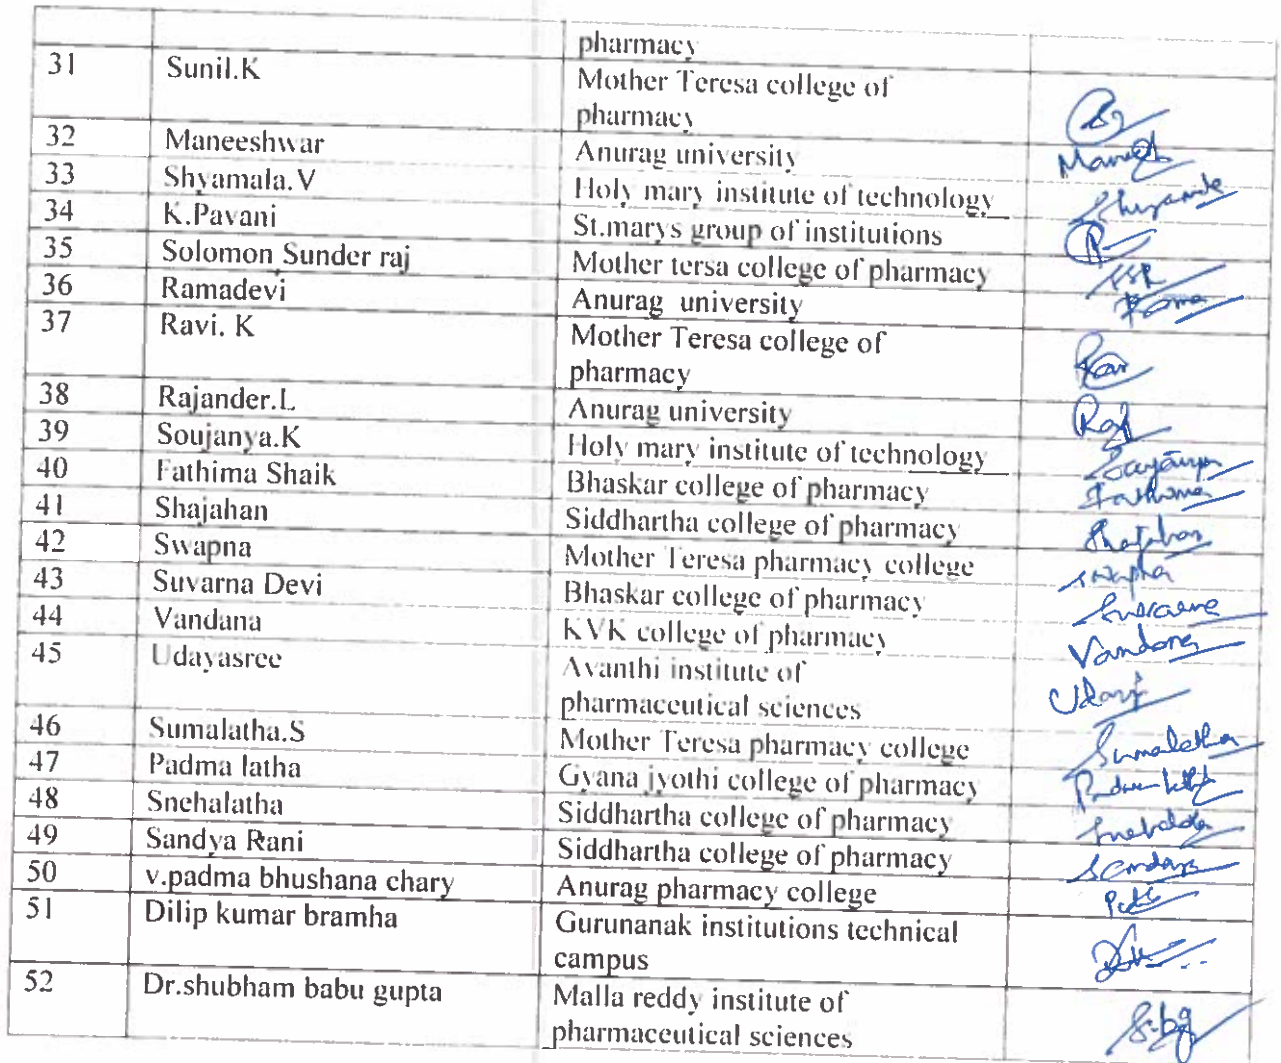 pharmacy
31 Sunil.K Mother Teresa college of
pharmacy
32 Maneeshwar Anurag university
33 Shyamala.V Holy mary institute of technology Shyamala
34 K.Pavani St.marys group of institutions
35 Solomon Sunder raj Mother tersa college of pharmacy SSR
36 Ramadevi Anurag university Rama
37 Ravi. K Mother Teresa college of
pharmacy Ravi
38 Rajander.L Anurag university Raj
39 Soujanya.K Holy mary institute of technology Soujanya
40 Fathima Shaik Bhaskar college of pharmacy Fathima
41 Shajahan Siddhartha college of pharmacy Shajahan
42 Swapna Mother Teresa pharmacy college swapna
43 Suvarna Devi Bhaskar college of pharmacy Suvarna
44 Vandana KVK college of pharmacy Vandana
45 Udayasree Avanthi institute of
pharmaceutical sciences
46 Sumalatha.S Mother Teresa pharmacy college Sumalatha
47 Padma latha Gyana jyothi college of pharmacy Padma latha
48 Snehalatha Siddhartha college of pharmacy Snehalatha
49 Sandya Rani Siddhartha college of pharmacy Sandya
50 v.padma bhushana chary Anurag pharmacy college
51 Dilip kumar bramha Gurunanak institutions technical
campus
52 Dr.shubham babu gupta Malla reddy institute of
pharmaceutical sciences S.bg